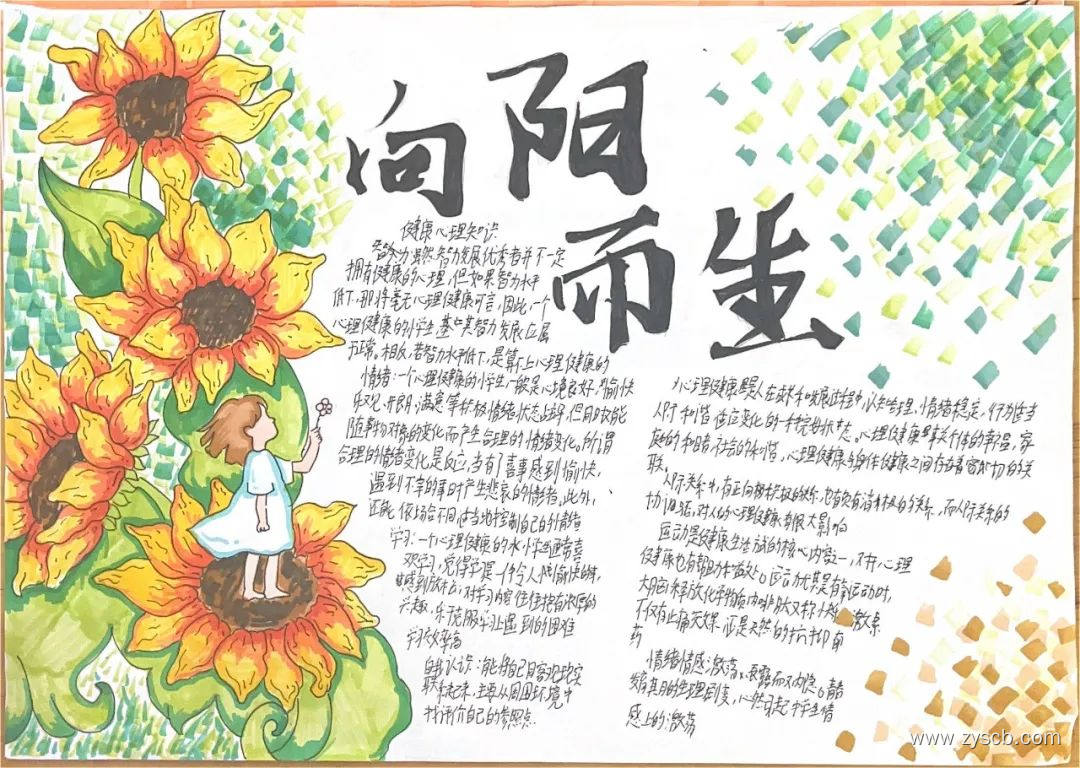 向阳
而生
健康心理知识
智力:虽然智力发展优秀者并不一定
拥有健康的心理,但如果智力水平
低下,那将毫无心理健康可言,因此,一个
心理健康的小学生,基中其智力发展应属
于正常。相反,若智力水平低下,是算不上心理健康的
情绪:一个心理健康的小学生一般是心境良好,愉快
乐观、开朗、满意等积极情绪状态占,但同时又能
随事物对象的变化而产生合理的情绪变化。所谓
合理的情绪变化是反应,当有了喜事感到愉快,
遇到不幸的事时产生悲哀的情绪。此外,
还能依场合不同,适当地控制自己的情绪
学习:一个心理健康的小学生通常喜
欢学习,觉得学习是一件令人愉快的事,
感到,对学习内容往往抱有浓厚的
兴趣,乐于克服学习上遇到的困难
学习效率高
自我认识:能将自己目客观现实
联系起来,主要从周围环境中
找评价自己的参照点
心理健康是人在成长和发展过程中,认知合理,情绪稳定,行为适当
人际和谐,适应变化的一种完好状态。心理健康事关个体的幸福,家
庭的和睦,社会的和谐,心理健康与身体健康之间存在着密切的关
联。
人际关系中,有正向积极的关系,也有负向消极的关系,而人际关系的
协调与否,对人的心理健康有很大影响
运动是健康生活方式的核心内容之一,对于心理
健康也有帮助和益处。运动尤其是有氧运动时,
大脑释放化学物质内啡肽又称快乐激素
不仅有止痛效果,还是天然的抗抑郁
药
情绪情感激荡、表露而又内隐。青春
发育其月的生理剧变,必然引起中学生情
感上的激荡
www.zyscb.com